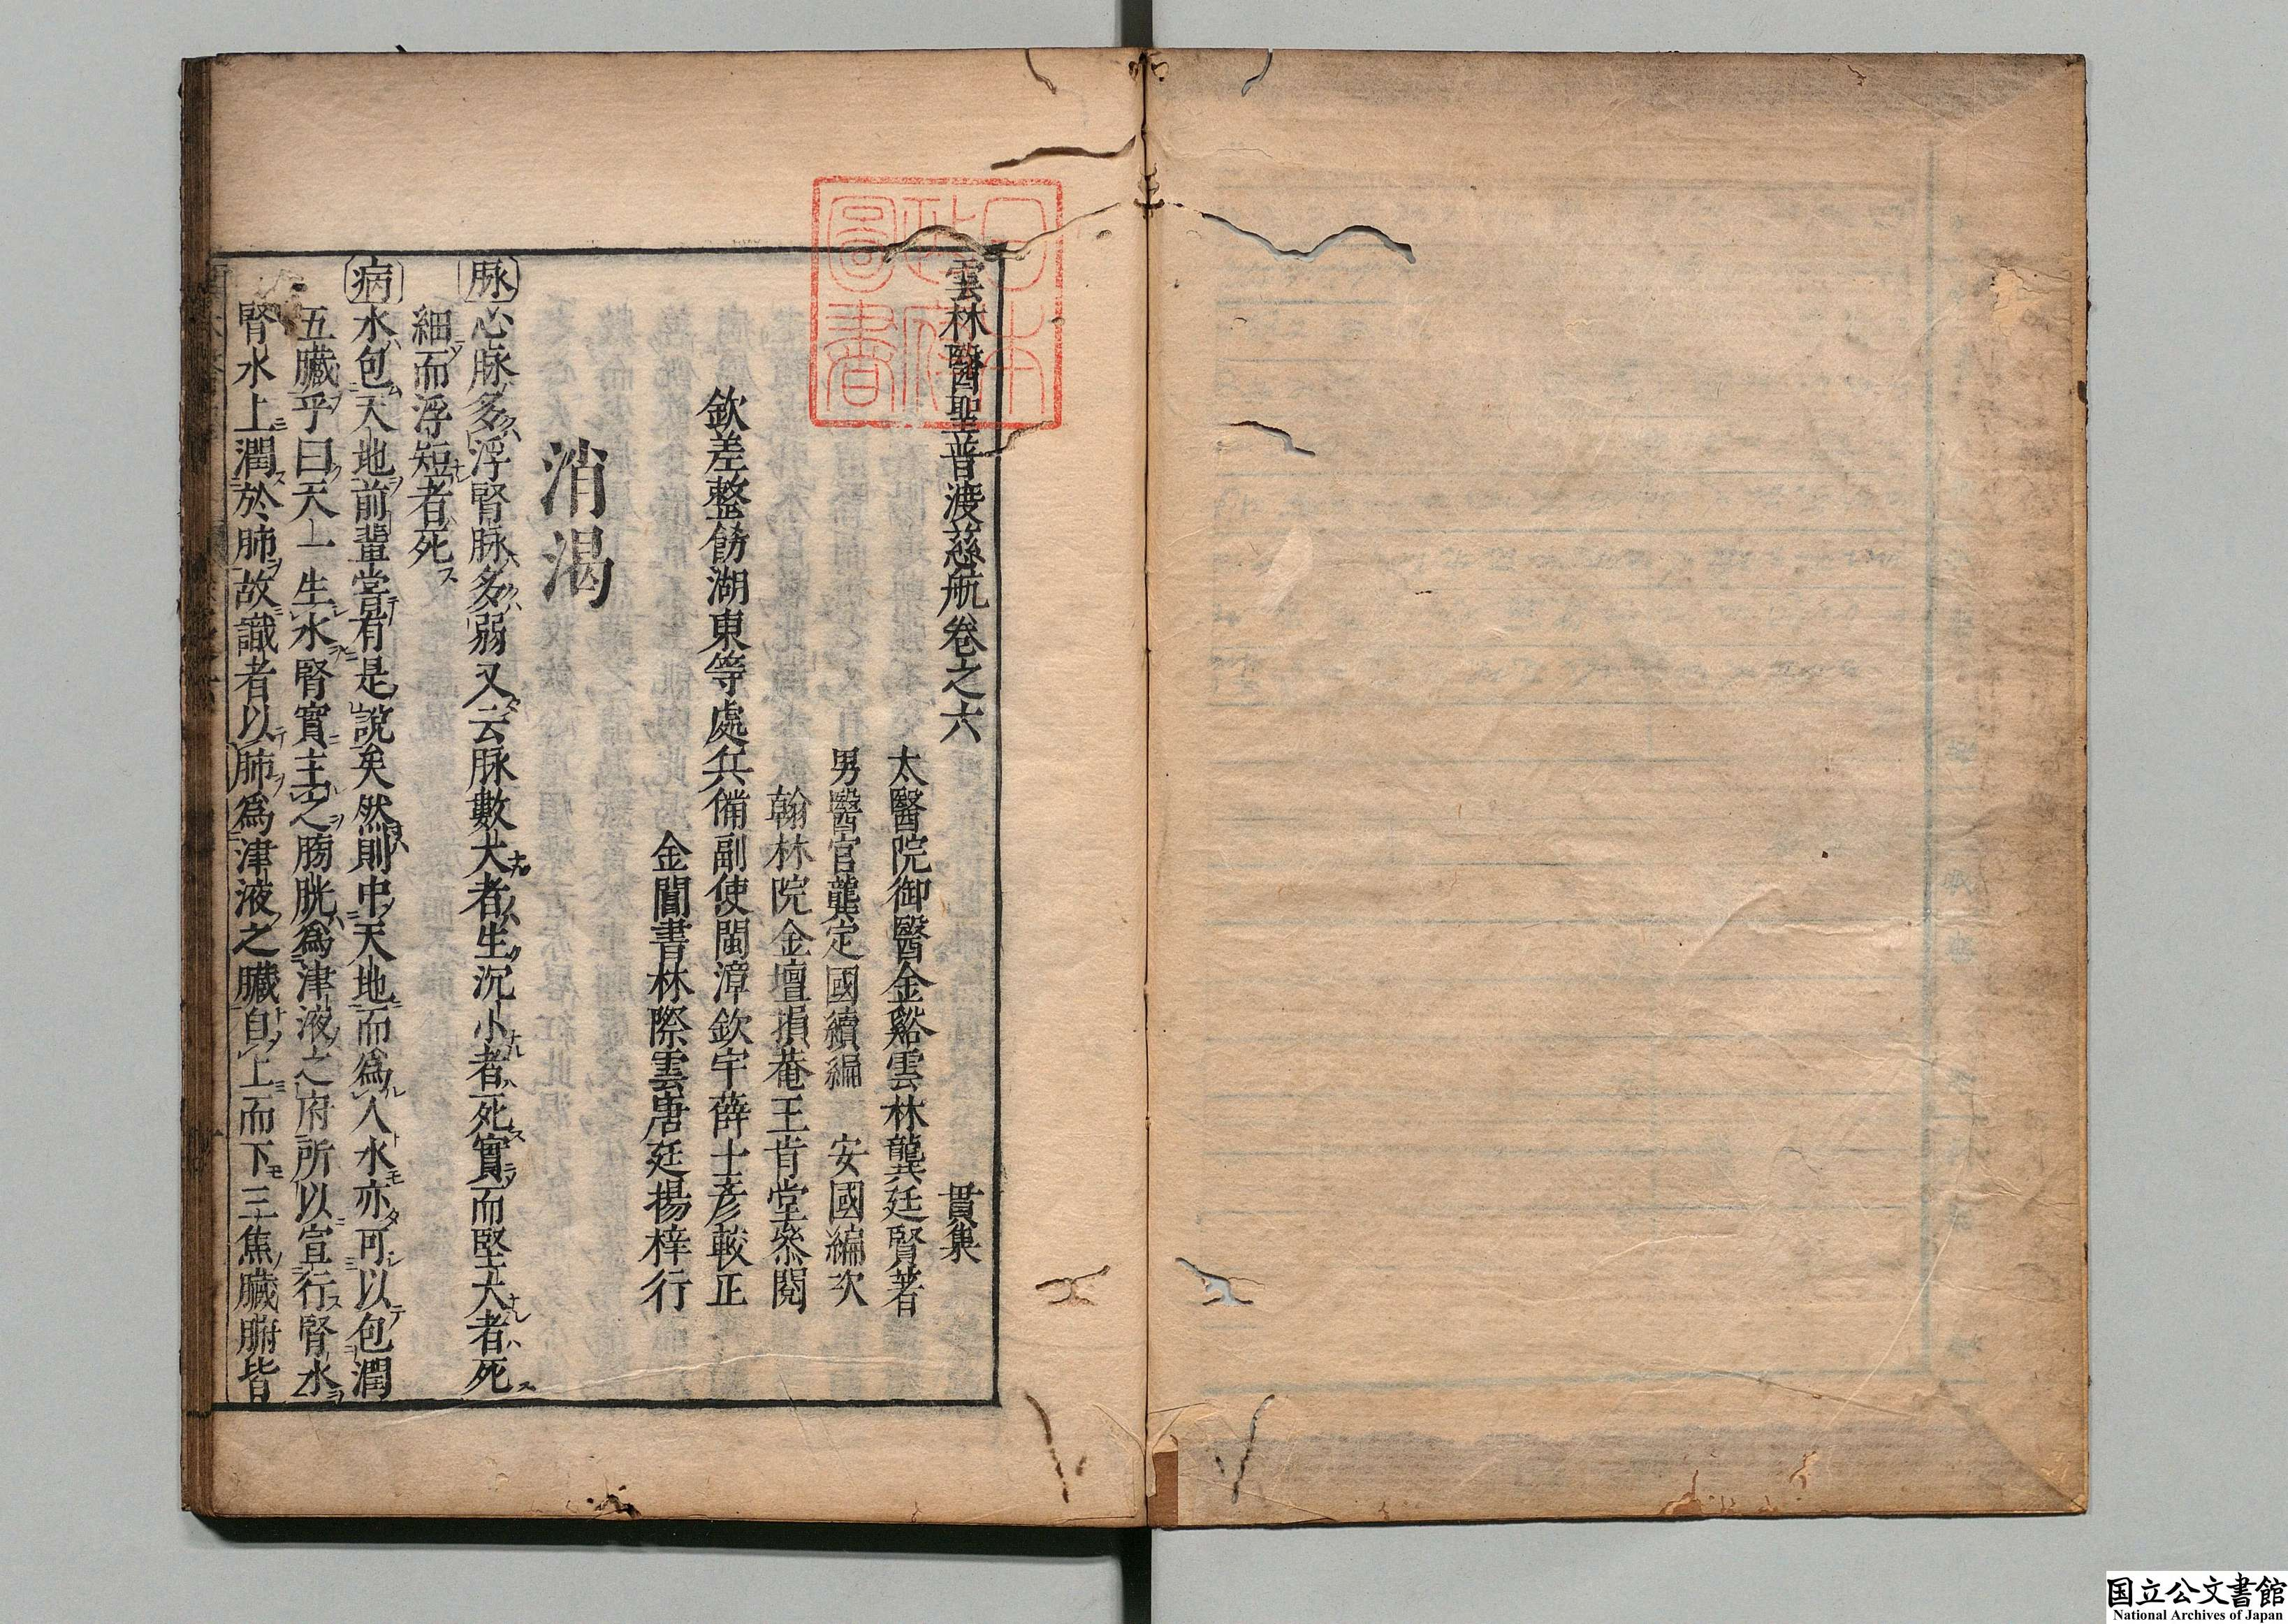 雲林醫聖普渡慈航卷之六 貫集
太醫院御醫金谿雲林龔廷賢著
男醫官龔定國續編 安國編次
翰林院金壇損菴王肯堂叅閱
欽差整飭湖東等處兵備副使閩漳欽宇薛士彥較正
金閶書林際雲唐廷揚梓行
消渴
脉心脉多浮腎脉多弱又云脉數大者生沉小者死實而堅大者死
細而浮短者死
病水包天地前輩嘗有是說矣然則中天地而為人水亦可以包潤
五臟乎曰天一生水腎實主之膀胱為津液之府所以宣行腎水
腎水上潤於肺故識者以肺為津液之臟自上而下三焦臟腑皆
日本政府圖書
国立公文書館
National Archives of Japan